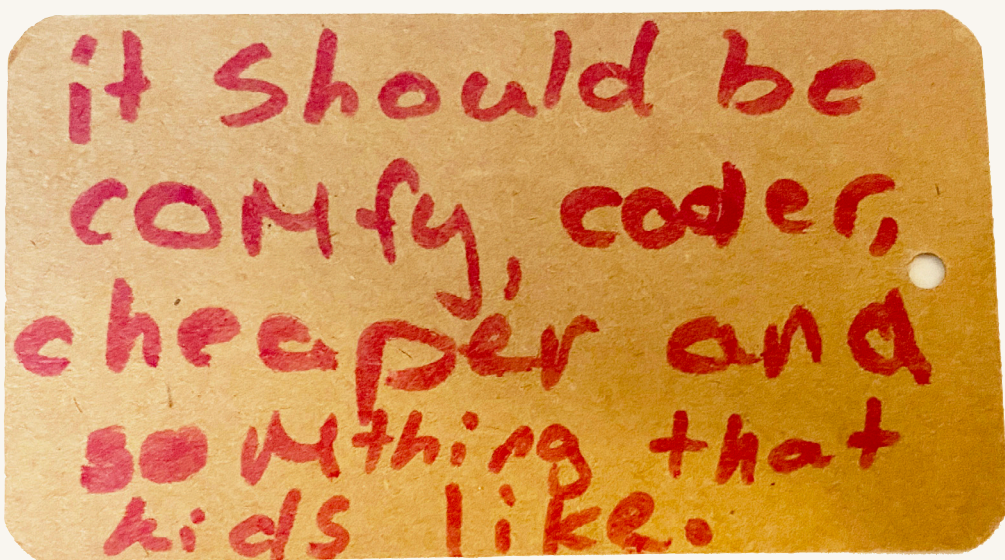 it should be
comfy, coder,
cheaper and
something that
kids like.